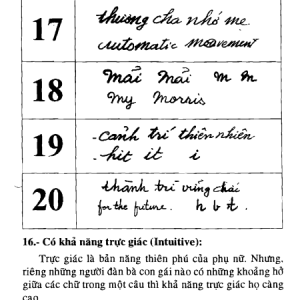 17
thương cha nhớ mẹ
automatic movement
18
mãi mãi m m
my morris
19
- cảnh trí thiên nhiên
- hit it i
20
thành trì vững chải
for the future. h b t.
16.- Có khả năng trực giác (Intuitive):
Trực giác là bản năng thiên phú của phụ nữ. Nhưng,
riêng những người đàn bà con gái nào có những khoảng hở
giữa các chữ trong một câu thì khả năng trực giác họ càng
cao